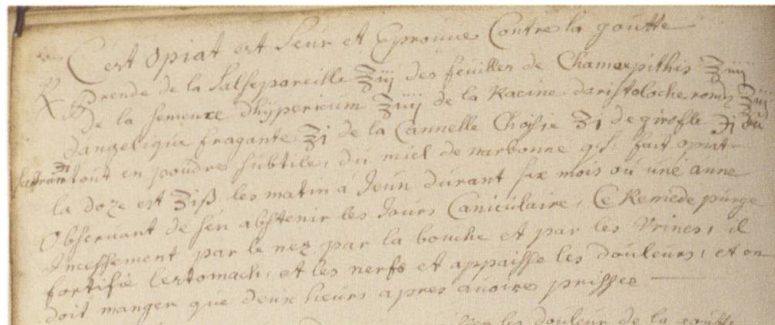 Cest opiat est seur et Eprouvé Contre la goutte
℞ prende de la salseparelle ʒiij des feuilles de Chamaepithis ʒiiij
de la semence dhijperricum ʒiiij de la Racine daristoloche ronde ʒiij
dangelique fragante ʒi de la Cannelle Choisie ʒi de girofle ʒi
tout en poudre subtile, du miel de narbonne q.s. fait opiat
la doze est ʒiß les matin a Jeun durant six mois ou une anne
Observant de sen abstenir les Jours Caniculaire, Ce Remede purge
Incessement par le nez par la bouche et par les Vrines, il
fortifie lestomach, et les nerfs et appaisse les douleurs, et on
doit manger que deux heures apres avoire prisse
les douleur de la goutte